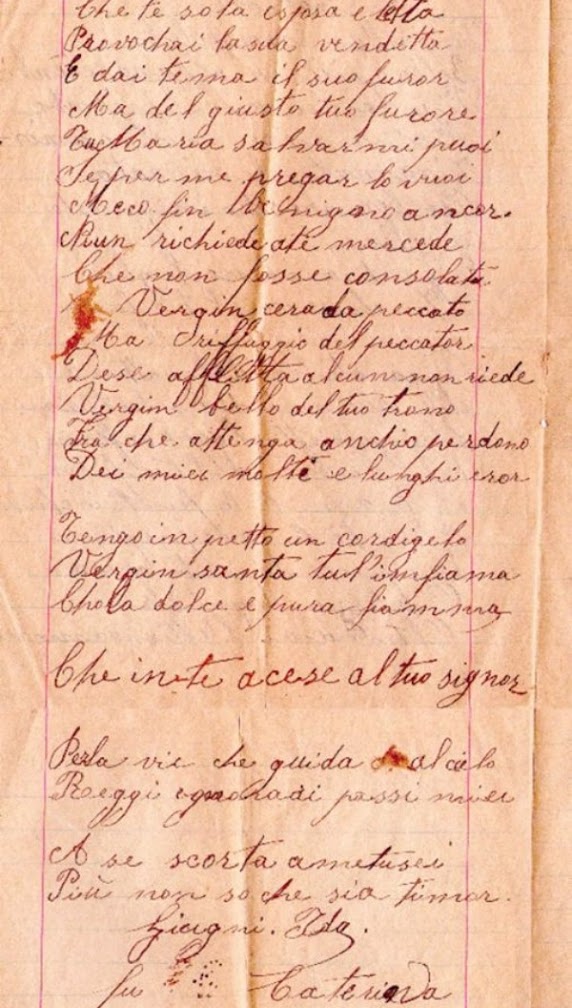 Che te sola sposa eletta
Provochai la sua vendetta
E dai tema il suo furor
Ma del giusto tuo furore
Tu Maria salvarmi puoi
Se per me pregar lo vuoi
Meco fin benigno ancor.
Niun richiede a te mercede
Che non fosse consolata
Vergin cerada peccato
Ma driffuggio del peccator
Dese affletta alcun non riede
Vergin bello del tuo trono
Fra che attenga anchio perdono
Dei miei molti e lunghi eror
Tengo in petto un cor di gelo
Vergin santa tu l'imfiama
Chola dolce e pura fiamma
Che in te acese al tuo signor
Perla vie che guida al cielo
Reggi ognora di passi miei
A se scorta ametusei
Più non so che sia timor.
Giugni. Ida.
fu Caterina